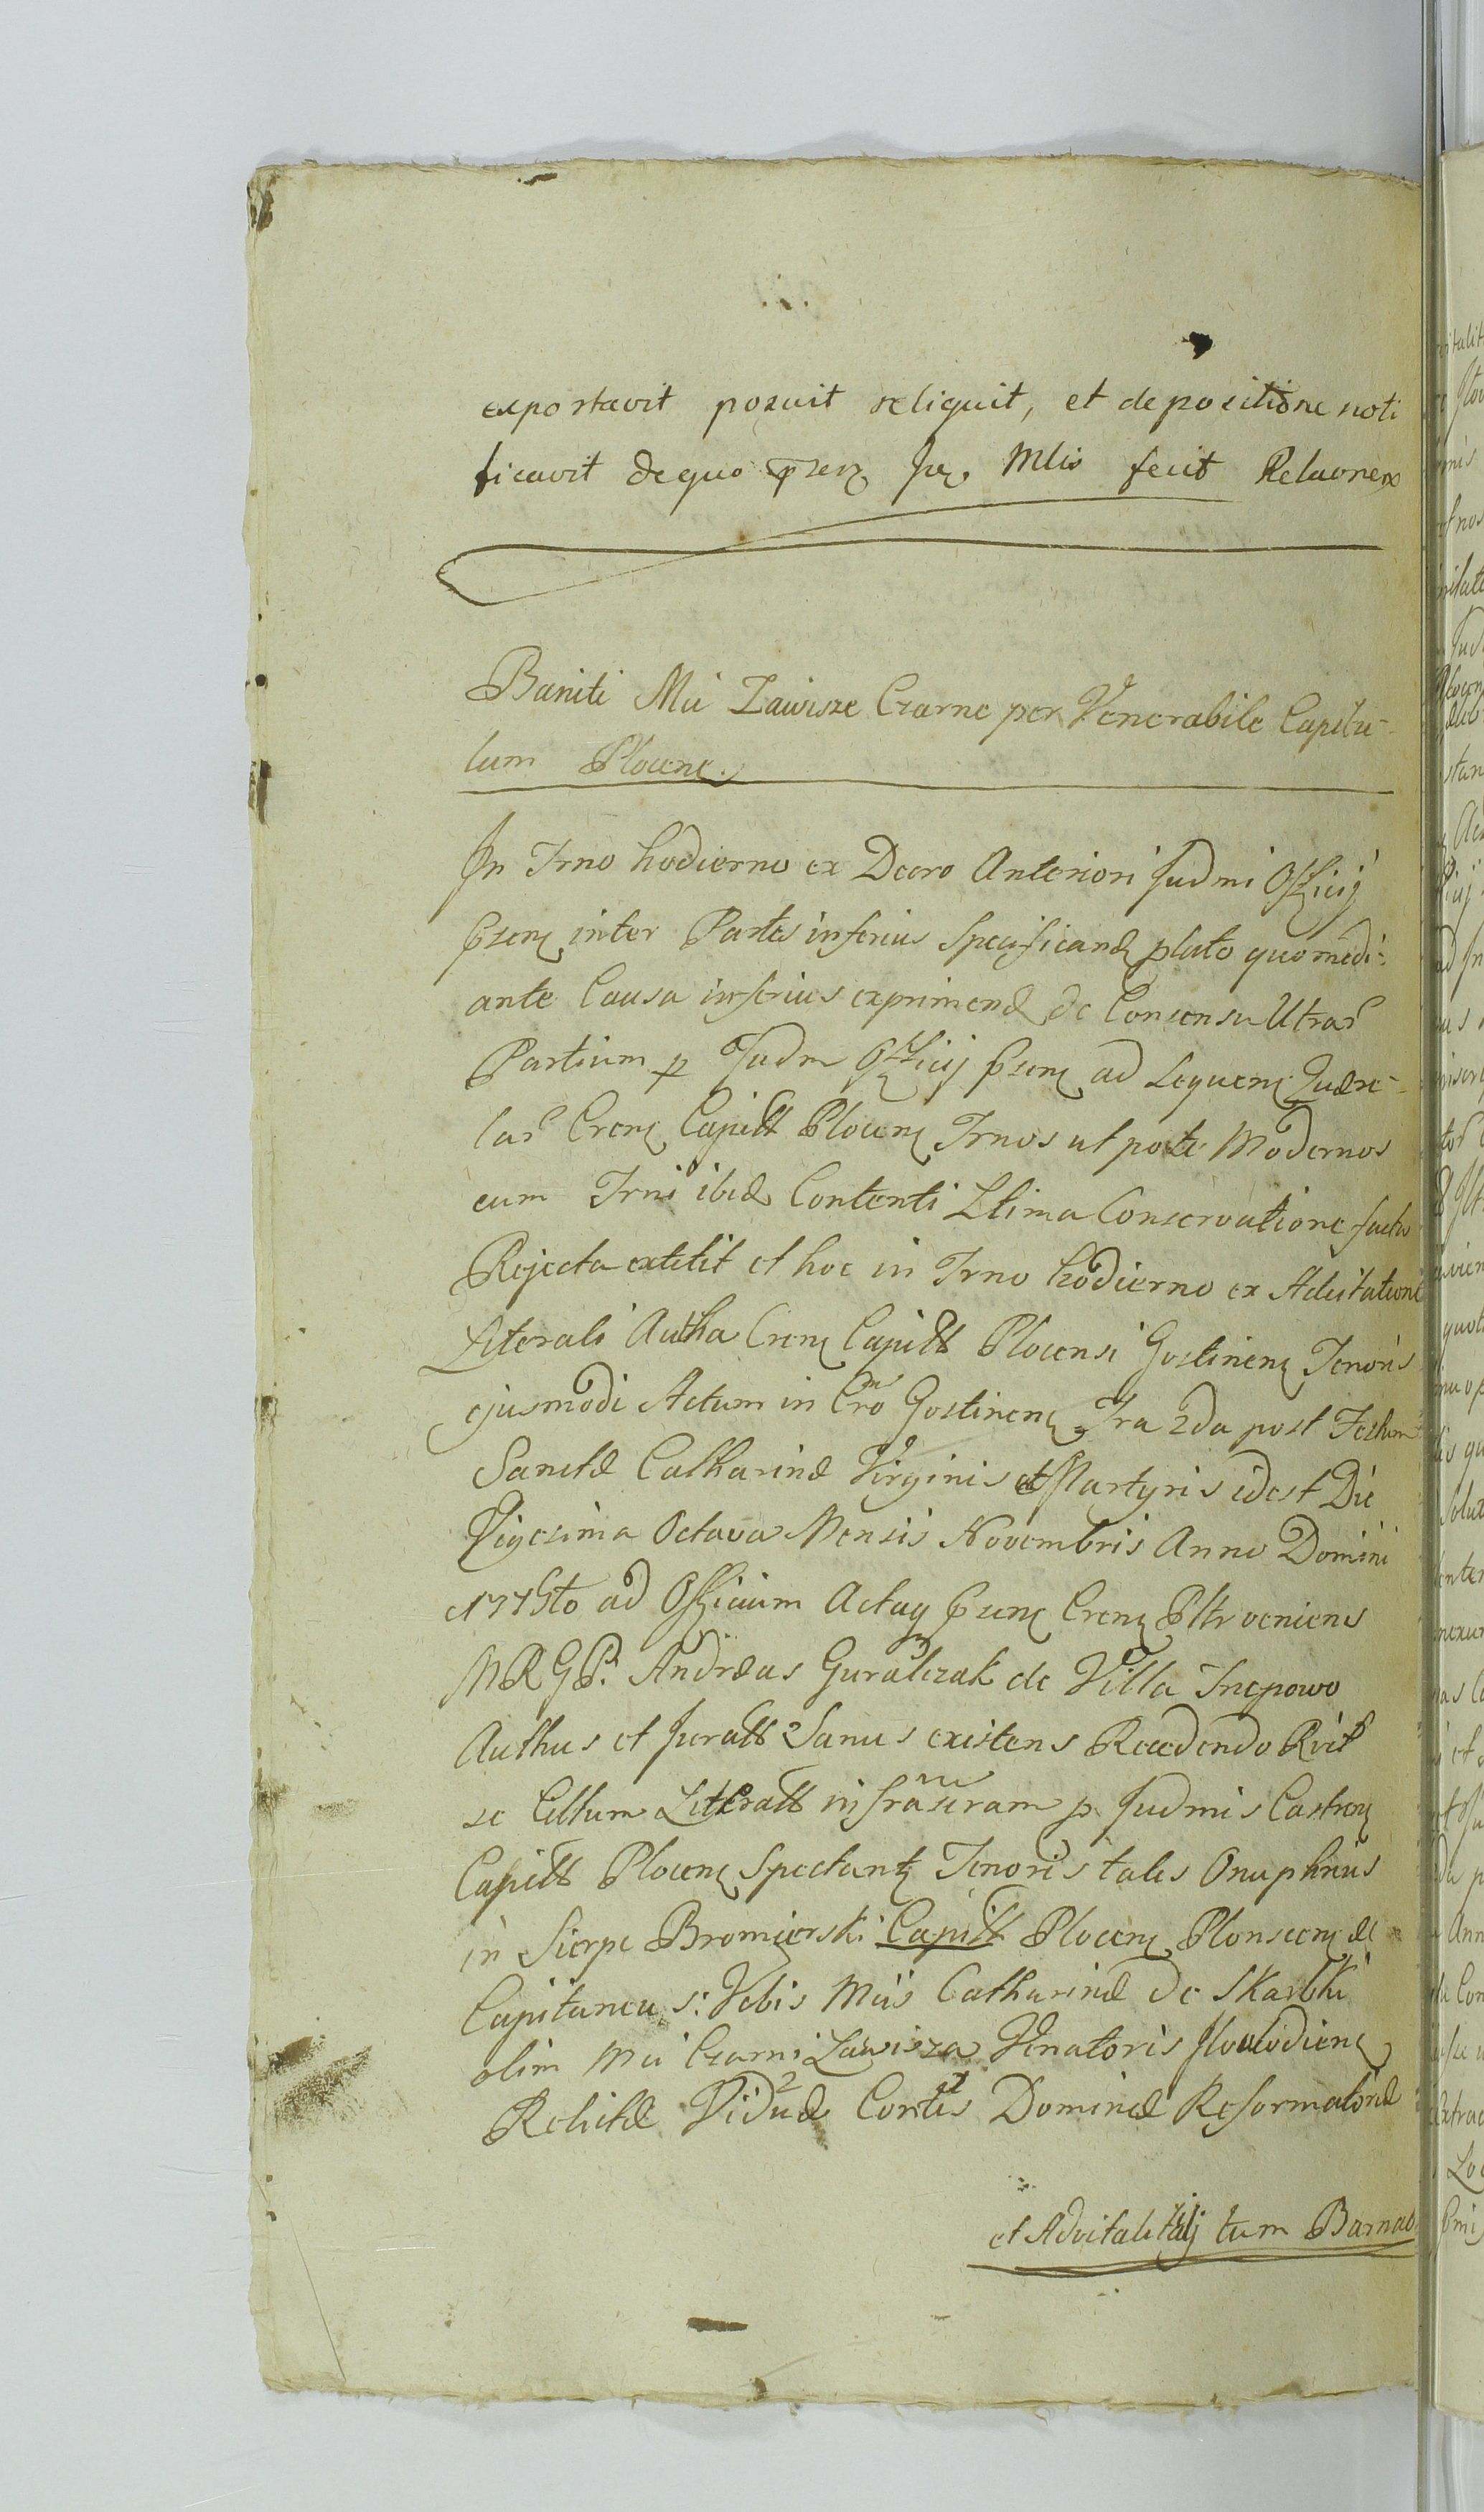 exportavit posuit reliquit, et depositione noti
ficavit de quo przenz Jn. Mlis fecit Relaonem
Baniti Mci Zawisze Czarne per Venerabile Capitu-
lum Plocene.
In Trno hodierno ex Decro Anteriori Judmi Officij
przenz inter Partes inferius Specificand plato quo medi-
ante Causa inferius exprimend de Consensu Utrar
Partium p Judm Officij przenz ad Sequenz Quære-
lar Crenz Capitt Plocenz Trnos ut pote Modernos
cum Trni ibid Contenti Llima Conservatione facta
Rejecta extitit et hoc in Trno hodierno ex Adcitatione
Literali Autha Crenz Capitt Plocensi Gostinenz Tenoris
ejusmodi Actum in Cro Gostinenz Fra 2da post Festum
Sanctæ Catharinæ Virginis et Martyris idest Die
Vigesima Octava Mensis Novembris Anno Domini
ad Officium Actaq przenz Crenz Pltr veniens
MRGP. Andreas Guralczak de Villa
Authus et Juratt Sanus existens Recedendo
se Cittum Litteratt infrascram p Judmis Castrenz
Capitt Plocenz Spectantz Tenoris talis Onuphrius
in Sierpc Bromierski Capitt Plocenz Plonscenz &c
Capitaneus: Vobis Mcis Catharinæ de Skarbki
olim Mci Czarni Zawisza Venatoris
Relictæ Viduæ Dominæ Reformatoriæ
et Advitalitatij tum Barnab